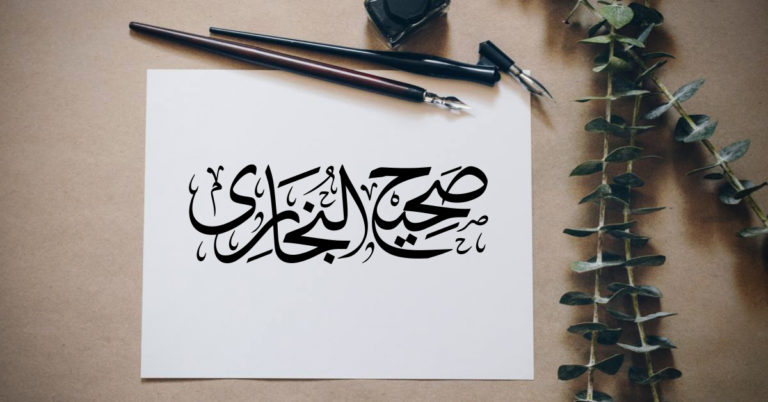 صَحِيح البُخَارِى